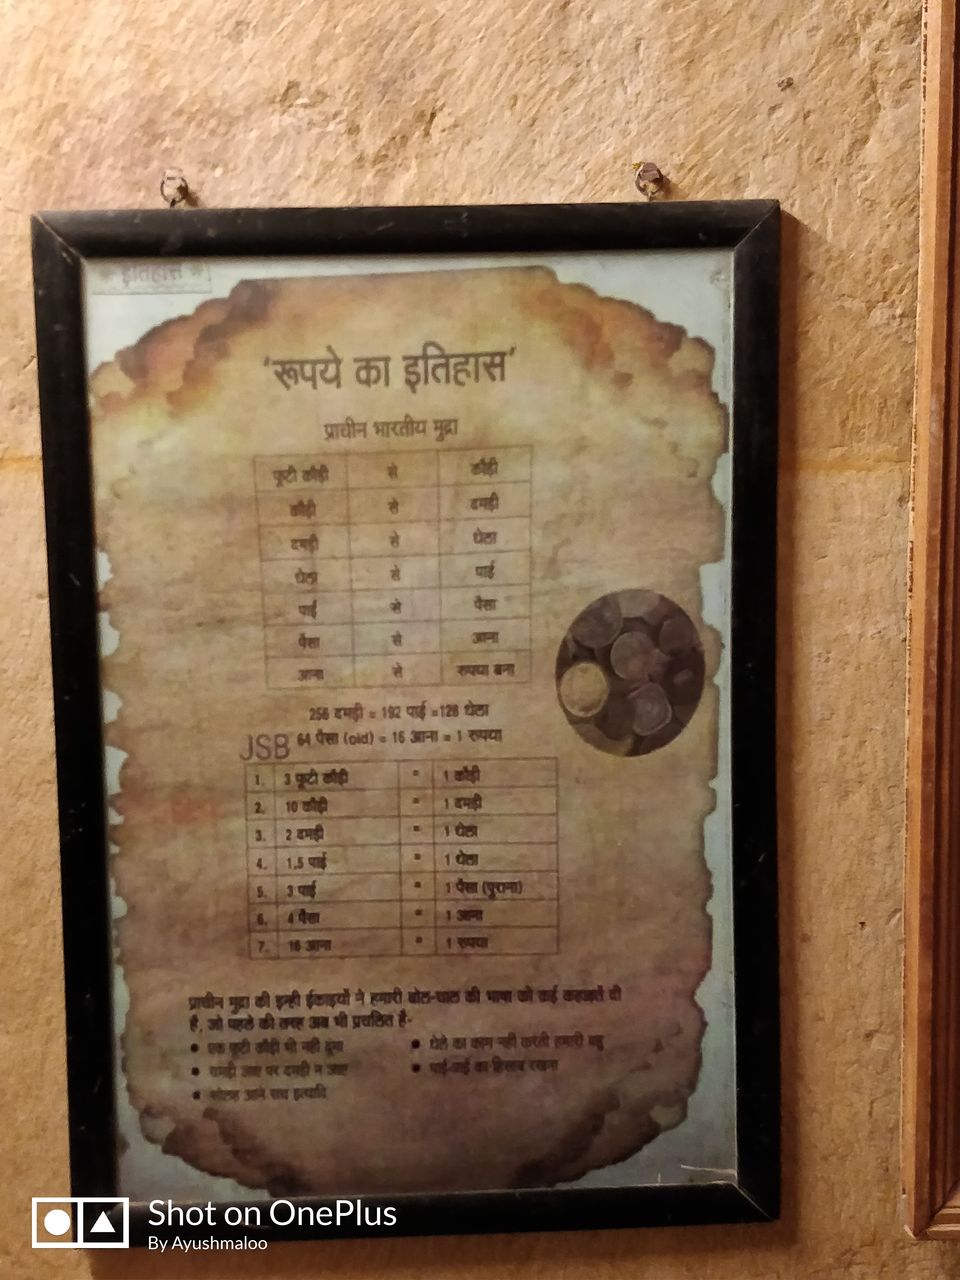 इतिहास
'रूपये का इतिहास'
प्राचीन भारतीय मुद्रा
फूटी कौड़ी से कौड़ी
कौड़ी से दमड़ी
दमड़ी से धेला
धेला से पाई
पाई से पैसा
पैसा से आना
आना से रुपया बना
256 दमड़ी = 192 पाई =128 धेला
JSB 64 पैसा (old) = 16 आना = 1 रुपया
1. 3 फूटी कौड़ी = 1 कौड़ी
2. 10 कौड़ी = 1 दमड़ी
3. 2 दमड़ी = 1 धेला
4. 1.5 पाई = 1 धेला
5. 3 पाई = 1 पैसा (पुराना)
6. 4 पैसा = 1 आना
7. 16 आना = 1 रुपया
प्राचीन मुद्रा की इन्ही ईकाइयों ने हमारी बोल-चाल की भाषा को कई कहावतें दी
है, जो पहले की तरह अब भी प्रचलित है-
• एक फूटी कौड़ी भी नही दूंगा
• धेले का काम नही करती हमारी बहु
• चमड़ी जाए पर दमड़ी न जाए
• पाई-पाई का हिसाब रखना
• सोलह आने सच इत्यादि
Shot on OnePlus
By Ayushmaloo